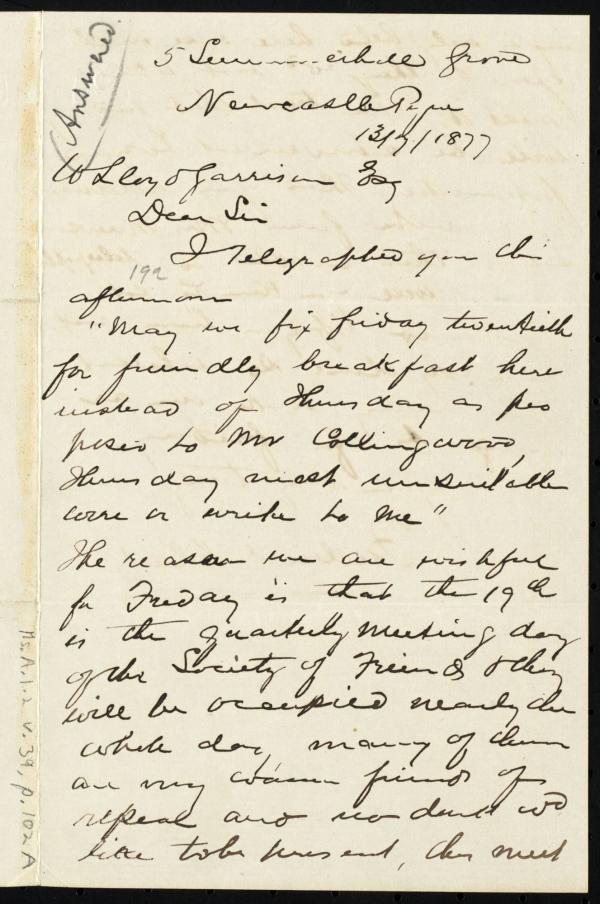 Answered
5 Summerhill Grove
Newcastle Tyne
13/7/1877
W Lloyd Garrison Esq
Dear Sir
I Telegraphed you this
192
afternoon
"May we fix friday twentieth
for friendly breakfast here
instead of Thursday as pro
posed to Mr Collingwood,
Thursday most unsuitable
wire or write to me"
The reason we are wishful
for Friday is that the 19th
is the Quarterly Meeting day
of the Society of Friends & they
will be occupied nearly the
whole day, many of them
are very warm friends of
repeal and no doubt wd
like to be present, they meet
Ms. A. 1. 2 v. 39, p. 102 A